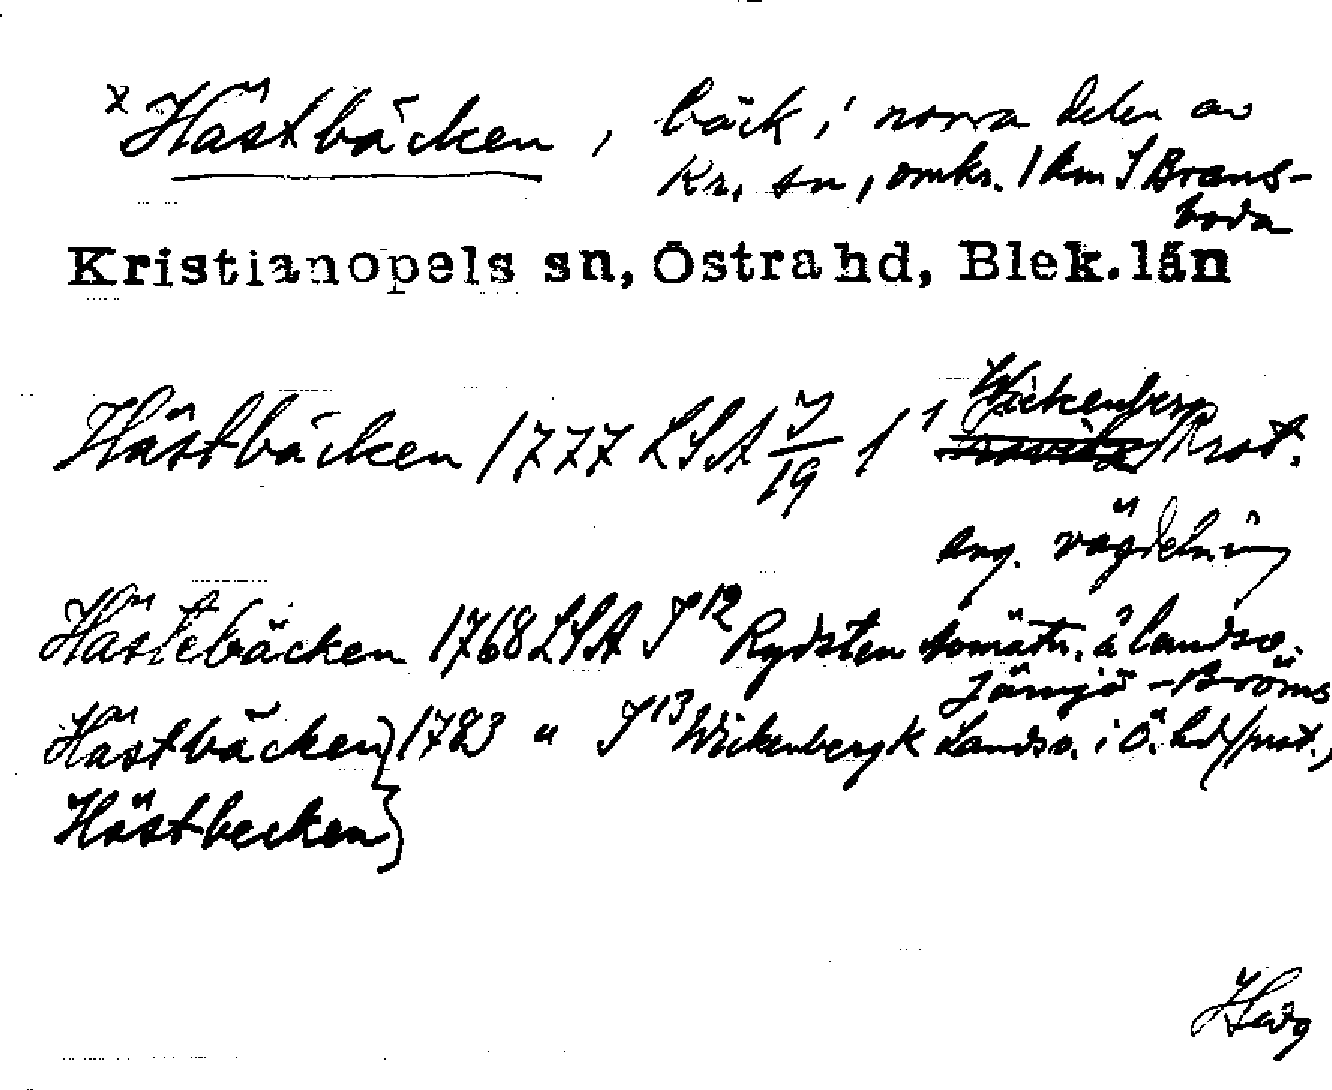 x Hästbäcken, bäck i norra delen av
Kr. sn, omkr. 1 km S Brams-
boda
Kristianopels sn, Östra hd, Blek. län
Wickenberg
Hästbäcken 1777 LSA J/19 1 1 Prot.
ang. vägdelning
Hästebäcken 1768 LSA J 12 Rydsten å landsv.
Jämjö - Bröms
Hästbäcken } 1783 " J 13 Wickenbergk Landsv. i Ö. hd (prot.)
Hästbecken }